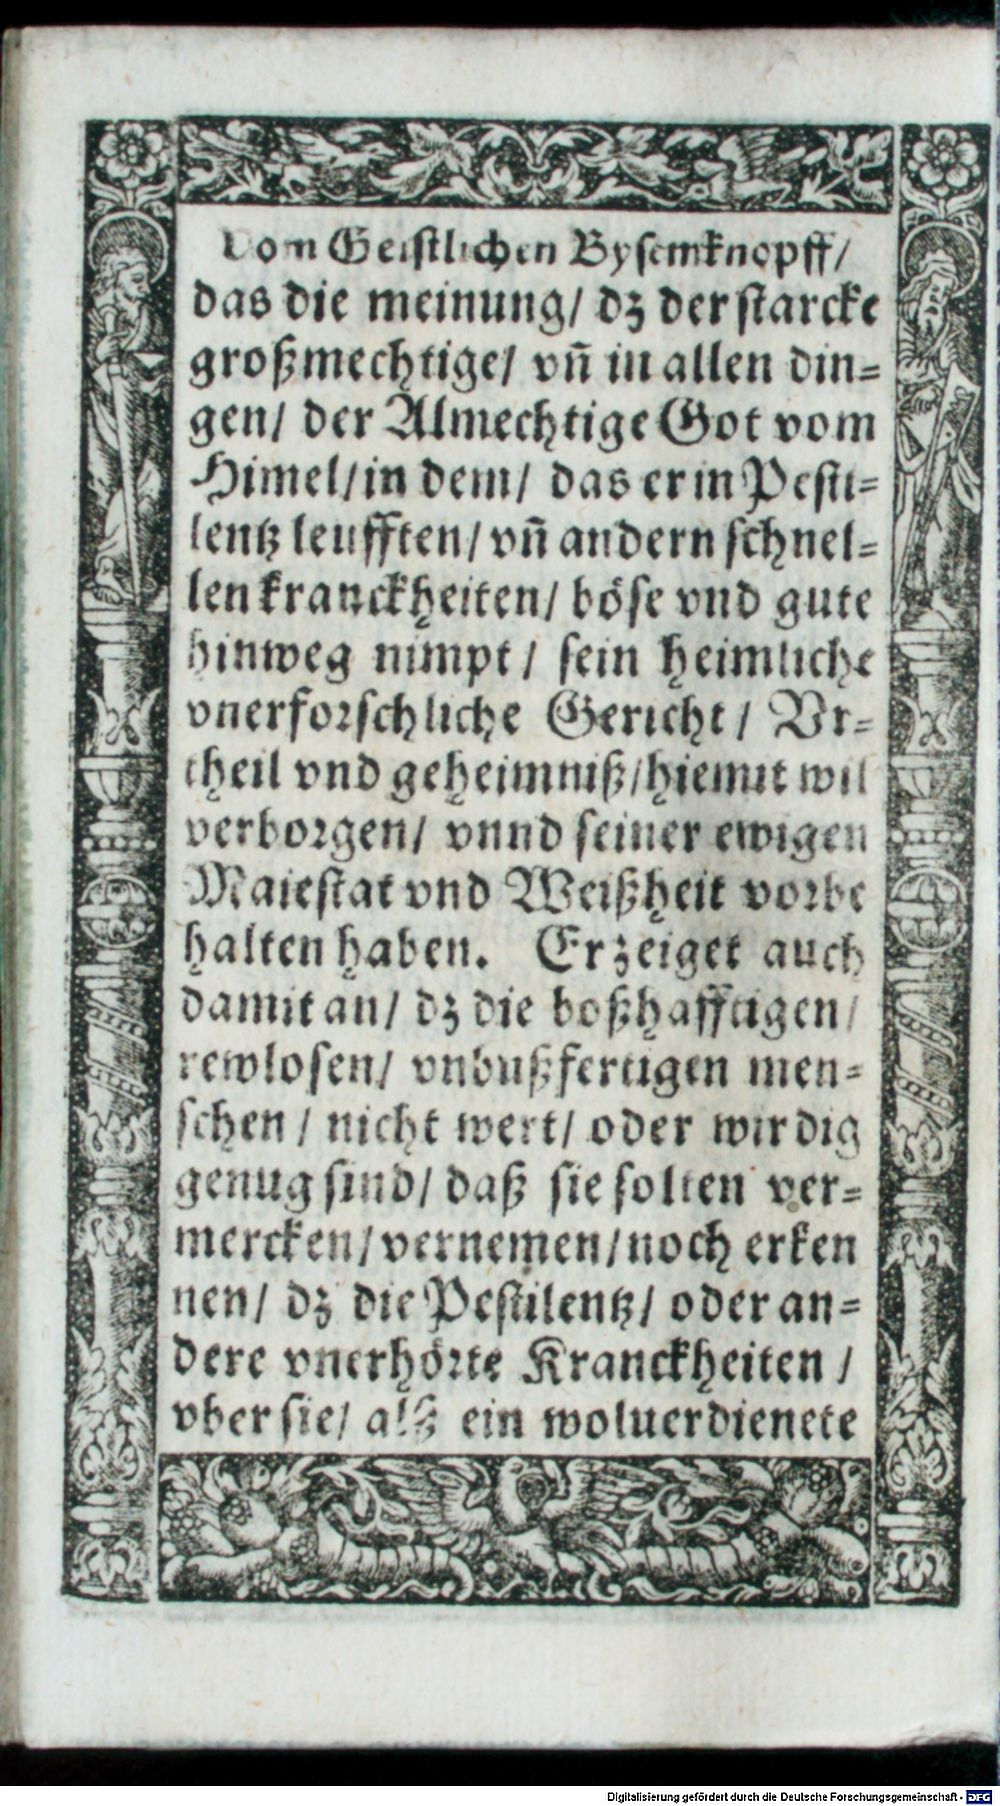 Vom Geistlichen Bysemknopff/
das die meinung/ dz der starcke
großmechtige/ vñ in allen din=
gen/ der Almechtige Got vom
Himel/ in dem/ das er in Pesti=
lentz leufften/ vñ andern schnel=
len kranckheiten/ böse vnd gute
hinweg nimpt/ sein heimliche
vnerforschliche Gericht/ Vr=
theil vnd geheimniß/ hiemit wil
verborgen/ vnnd seiner ewigen
Maiestat vnd Weißheit vorbe
halten haben. Er zeiget auch
damit an/ dz die boßhafftigen/
rewlosen/ vnbußfertigen men=
schen/ nicht wert/ oder wirdig
genug sind/ daß sie solten ver=
mercken/ vernemen/ noch erken
nen/ dz die Pestilentz/ oder an=
dere vnerhörte Kranckheiten/
vber sie/ alß ein woluerdienete
Digitalisierung gefördert durch die Deutsche Forschungsgemeinschaft - DFG